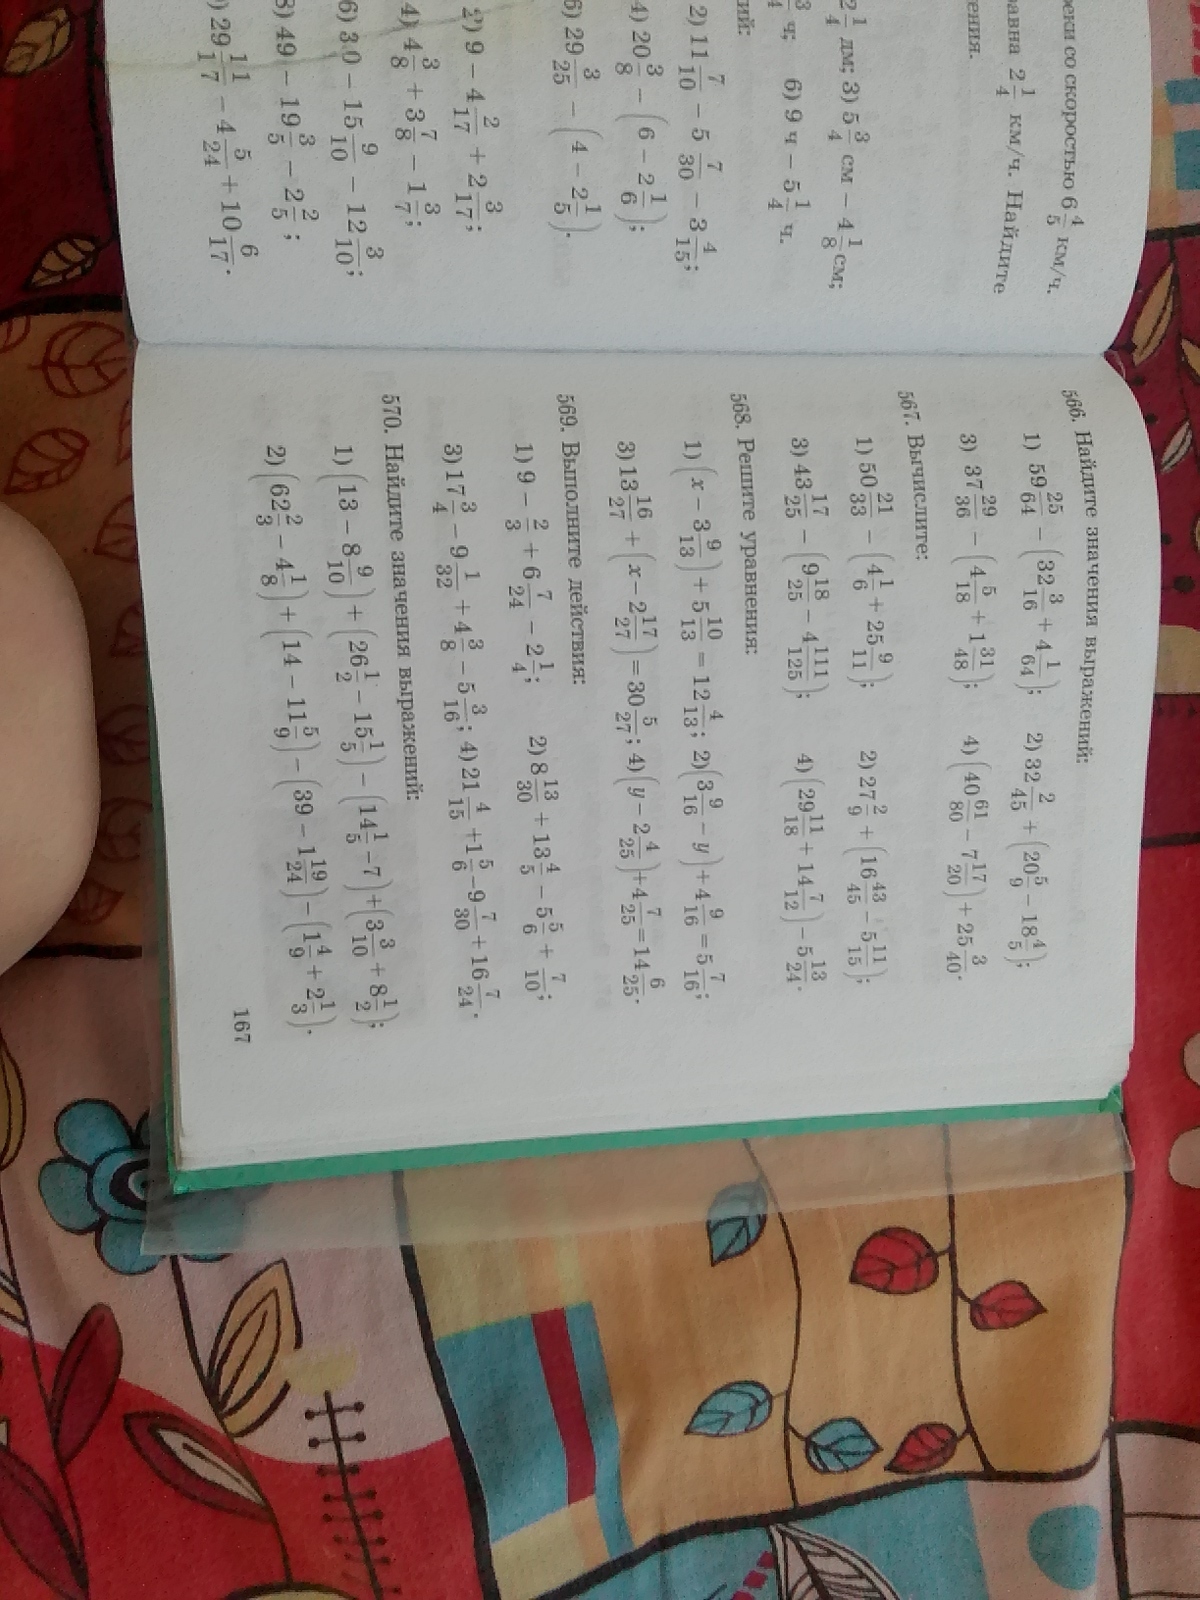 реки со скоростью 6 4/5 км/ч.
равна 2 1/4 км/ч. Найдите
2 1/4 дм; 3) 5 3/4 см − 4 1/8 см;
3/4 ч; 6) 9 ч − 5 1/4 ч.
2) 11 7/10 − 5 7/30 − 3 4/15;
4) 20 3/8 − (6 − 2 1/6);
6) 29 3/25 − (4 − 2 1/5).
2) 9 − 4 2/17 + 2 3/17;
4) 4 3/8 + 3 7/8 − 1 3/7;
6) 30 − 15 9/10 − 12 3/10;
8) 49 − 19 3/5 − 2 2/5;
) 29 11/17 − 4 5/24 + 10 6/17.
566. Найдите значения выражений:
1) 59 25/64 − (32 3/16 + 4 1/64); 2) 32 2/45 + (20 5/9 − 18 4/5);
3) 37 29/36 − (4 5/18 + 1 31/48); 4) (40 61/80 − 7 17/20) + 25 3/40.
567. Вычислите:
1) 50 21/33 − (4 1/6 + 25 9/11); 2) 27 2/9 + (16 43/45 − 5 11/15);
3) 43 17/25 − (9 18/25 − 4 111/125); 4) (29 11/18 + 14 7/12) − 5 13/24.
568. Решите уравнения:
1) (x − 3 9/13) + 5 10/13 = 12 4/13; 2) (3 9/16 − y) + 4 9/16 = 5 7/16;
3) 13 16/27 + (x − 2 17/27) = 30 5/27; 4) (y − 2 4/25) + 4 7/25 = 14 6/25.
569. Выполните действия:
1) 9 − 2/3 + 6 7/24 − 2 1/4; 2) 8 13/30 + 13 4/5 − 5 5/6 + 7/10;
3) 17 3/4 − 9 1/32 + 4 3/8 − 5 3/16; 4) 21 4/15 + 1 5/6 − 9 7/30 + 16 7/24.
570. Найдите значения выражений:
1) (13 − 8 9/10) + (26 1/2 − 15 1/5) − (14 1/5 − 7) + (3 3/10 + 8 1/2);
2) (62 2/3 − 4 1/8) + (14 − 11 5/9) − (39 − 1 19/24) − (1 4/9 + 2 1/3).
167